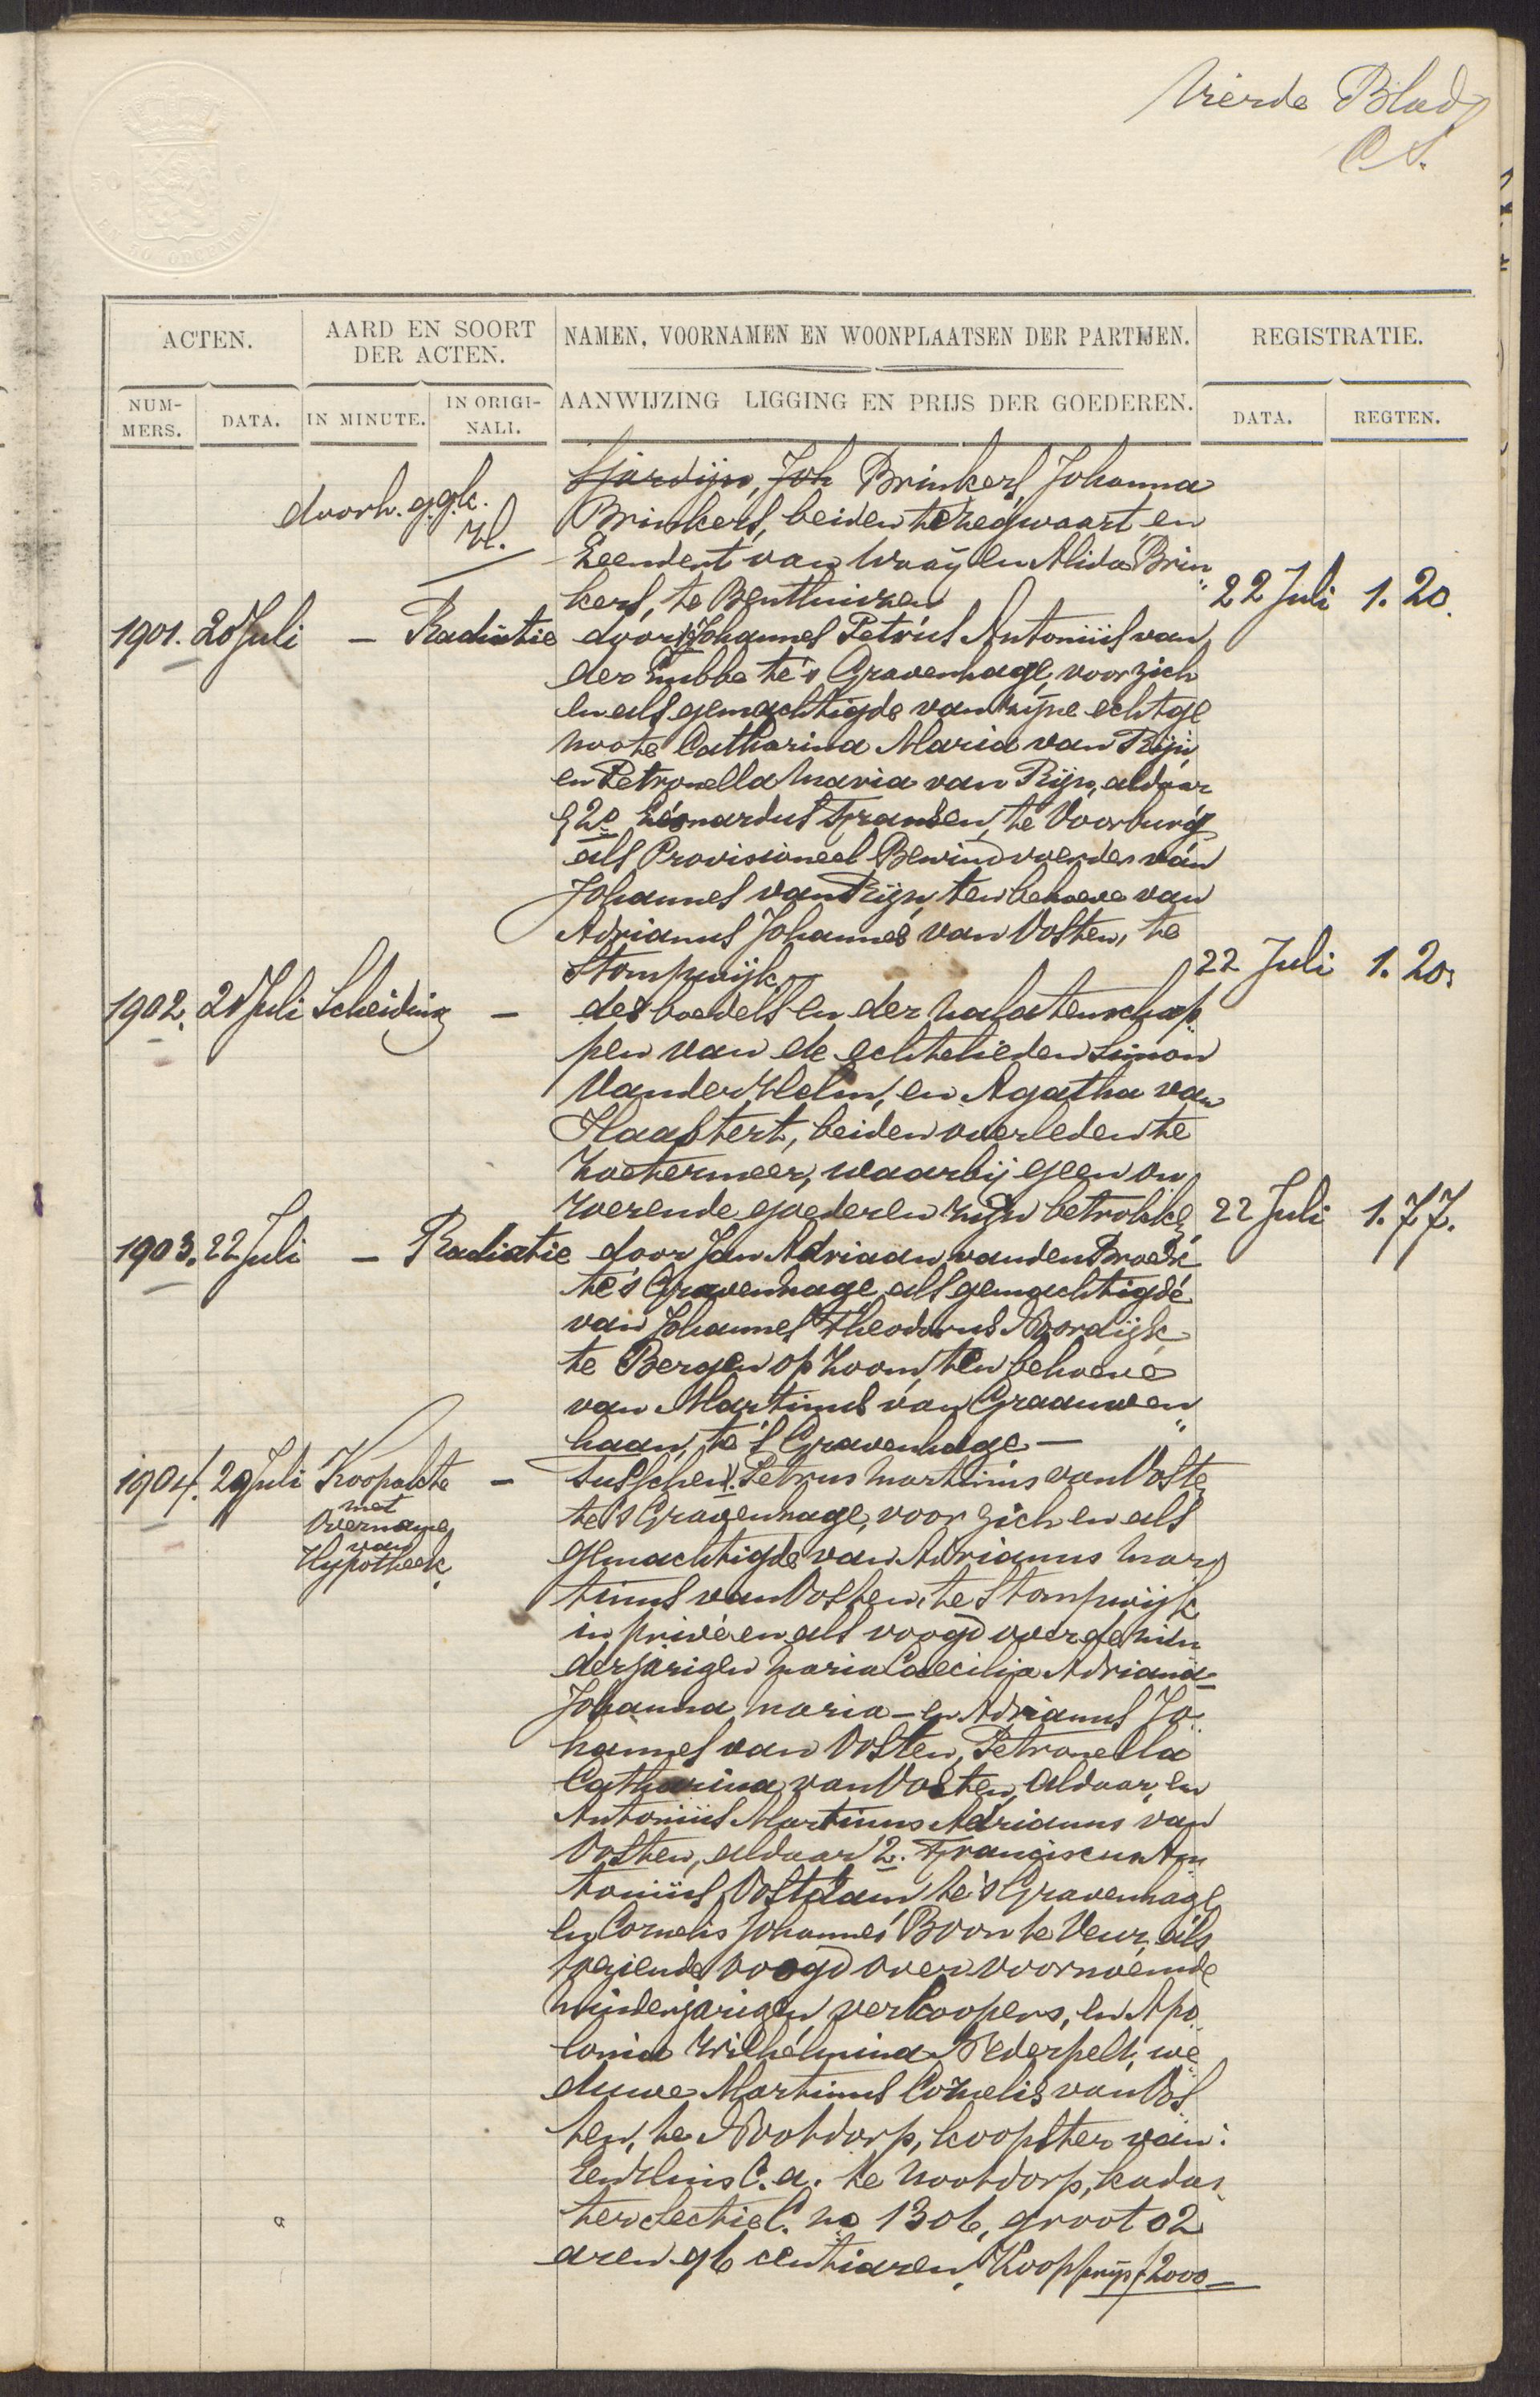 Vierde Blad
C S.
ACTEN.
AARD EN SOORT
DER ACTEN.
NAMEN, VOORNAMEN EN WOONPLAATSEN DER PARTIJEN.
REGISTRATIE.
NUM-
MERS.
DATA.
IN MINUTE.
IN ORIGI-
NALI.
AANWIJZING LIGGING EN PRIJS DER GOEDEREN.
DATA.
REGTEN.
doorh. g.gk.
Joh Brinkers, Johanna
Brinkers, beiden te Zegwaart, en
Leendert van Waaij en Alida Brin„
kers, te Benthuizen 22 Juli 1. 20.
1901. 20 Juli — Radiatie door 1. Johannes Petrus Antonius van
der Lubbe te 's Gravenhage, voor zich
en als gemachtigde van zijne echtge
noote Catharina Maria van Rijn
en Petronella Maria van Rijn, aldaar
& 2e Leonardus Fransen, te Voorburg
als Provisioneel Bewindvoerder van
Johannes van Rijn, ten behoeve van
Adrianus Johannes van Oosten, te
Stompwijk 22 Juli 1. 20.
1902. 20 Juli Scheiding — des boedels en der nalatenschap„
pen van de echtelieden Simon
van der Helm, en Agatha van
Haastert, beiden overleden te
Zoetermeer, waarbij geen on
roerende goederen zijn betrokken 22 Juli 1. 77.
1903. 22 Juli — Radiatie door Jan Adriaan van den Broek
te 's Gravenhage als gemachtigde
van Johannes Theodorus Noordijk
te Bergen op Zoom, ten behoeve
van Martinus van Graauwen„
haan, te 's Gravenhage —
1904. 20 Juli Koopakte — tusschen 1. Petrus Martinus van Oosten
met
Overname
van
Hypotheek.
te 's Gravenhage, voor zich en als
gemachtigde van Adrianus Mar
tinus van Oosten, te Stompwijk
in privé en als voogd over de min
derjarigen Maria Caecilia Adriana-
Johanna Maria - en Adrianus Jo„
hannes van Oosten, Petronella
Catharina van Oosten, aldaar, en
Antonius Martinus Adrianus van
Oosten, aldaar, 2. Franciscus An„
tonius Oostdam te 's Gravenhage
en Cornelis Johannes Boon te Veur, als
toeziende voogd over voornoemde
minderjarigen, verkoopers, en Apo„
lonia Wilhelmina Nederpelt, we„
duwe Martinus Cornelis van Oos„
ten, te Nootdorp, koopster van:
Een Huis c.a. te Nootdorp, kadas„
ter sectie C. no 1306, groot 02
aren 96 centiaren. Koopprijs f 2000—